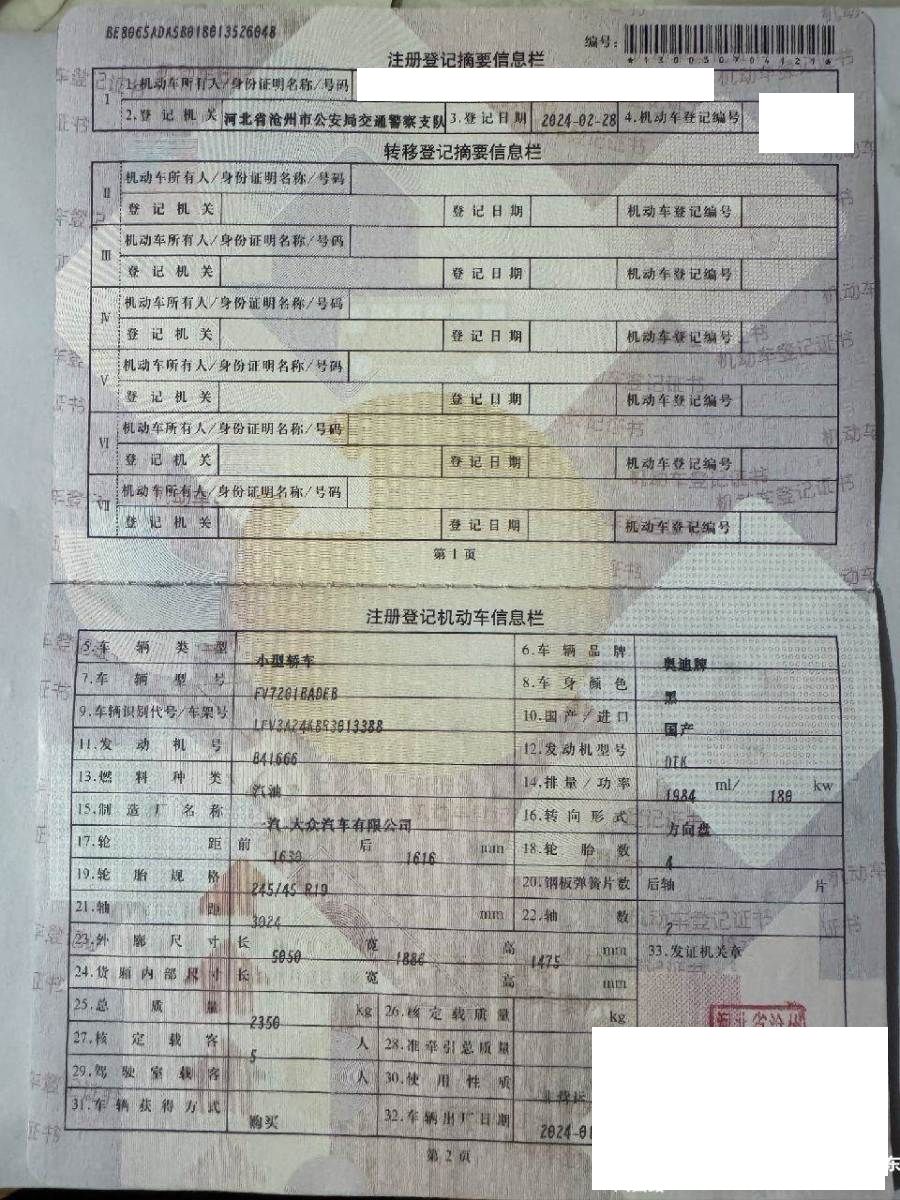 BE8065ADA5B018013526048
编号:
*130030704121*
注册登记摘要信息栏
Ⅰ 1.机动车所有人/身份证明名称/号码
2.登记机关 河北省沧州市公安局交通警察支队 3.登记日期 2024-02-28 4.机动车登记编号
转移登记摘要信息栏
Ⅱ 机动车所有人/身份证明名称/号码
登记机关 登记日期 机动车登记编号
Ⅲ 机动车所有人/身份证明名称/号码
登记机关 登记日期 机动车登记编号
Ⅳ 机动车所有人/身份证明名称/号码
登记机关 登记日期 机动车登记编号
Ⅴ 机动车所有人/身份证明名称/号码
登记机关 登记日期 机动车登记编号
Ⅵ 机动车所有人/身份证明名称/号码
登记机关 登记日期 机动车登记编号
Ⅶ 机动车所有人/身份证明名称/号码
登记机关 登记日期 机动车登记编号
第1页
注册登记机动车信息栏
5.车辆类型 小型轿车 6.车辆品牌 奥迪牌
7.车辆型号 FV7201BADEB 8.车身颜色 黑
9.车辆识别代号/车架号 10.国产/进口 国产
11.发动机号 B41666 12.发动机型号 DTK
13.燃料种类 汽油 14.排量/功率 1984 ml/ 180 kw
15.制造厂名称 一汽-大众汽车有限公司 16.转向形式 方向盘
17.轮距 前 1630 后 1616 mm 18.轮胎数 4
19.轮胎规格 245/45 R19 20.钢板弹簧片数 后轴 片
21.轴距 3024 mm 22.轴数 2
23.外廓尺寸 长 5050 宽 1886 高 1475 mm 33.发证机关章
24.货厢内部尺寸 长 宽 高 mm
25.总质量 2350 kg 26.核定载质量 kg
27.核定载客 5 人 28.准牵引总质量
29.驾驶室载客 人 30.使用性质 非营运
31.车辆获得方式 购买 32.车辆出厂日期 2024-01
第2页